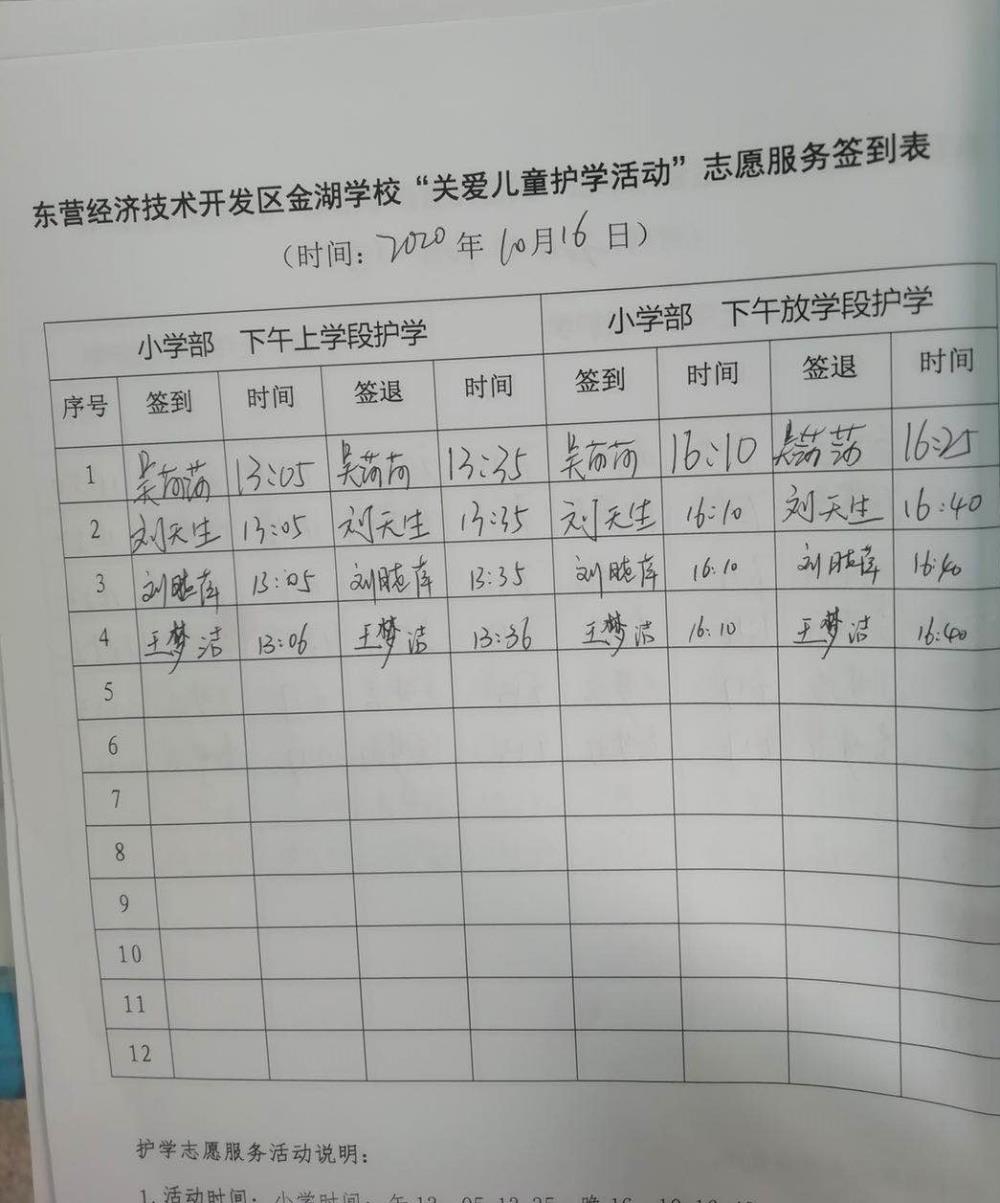 东营经济技术开发区金湖学校“关爱儿童护学活动”志愿服务签到表
（时间：2020年10月16日）
小学部 下午上学段护学 小学部 下午放学段护学
序号 签到 时间 签退 时间 签到 时间 签退 时间
1 13:05 13:35 16:10 16:25
2 刘天生 13:05 刘天生 13:35 刘天生 16:10 刘天生 16:40
3 13:05 13:35 16:10 16:40
4 王梦洁 13:06 王梦洁 13:36 王梦洁 16:10 王梦洁 16:40
5
6
7
8
9
10
11
12
护学志愿服务活动说明：
1.活动时间：小学时间：